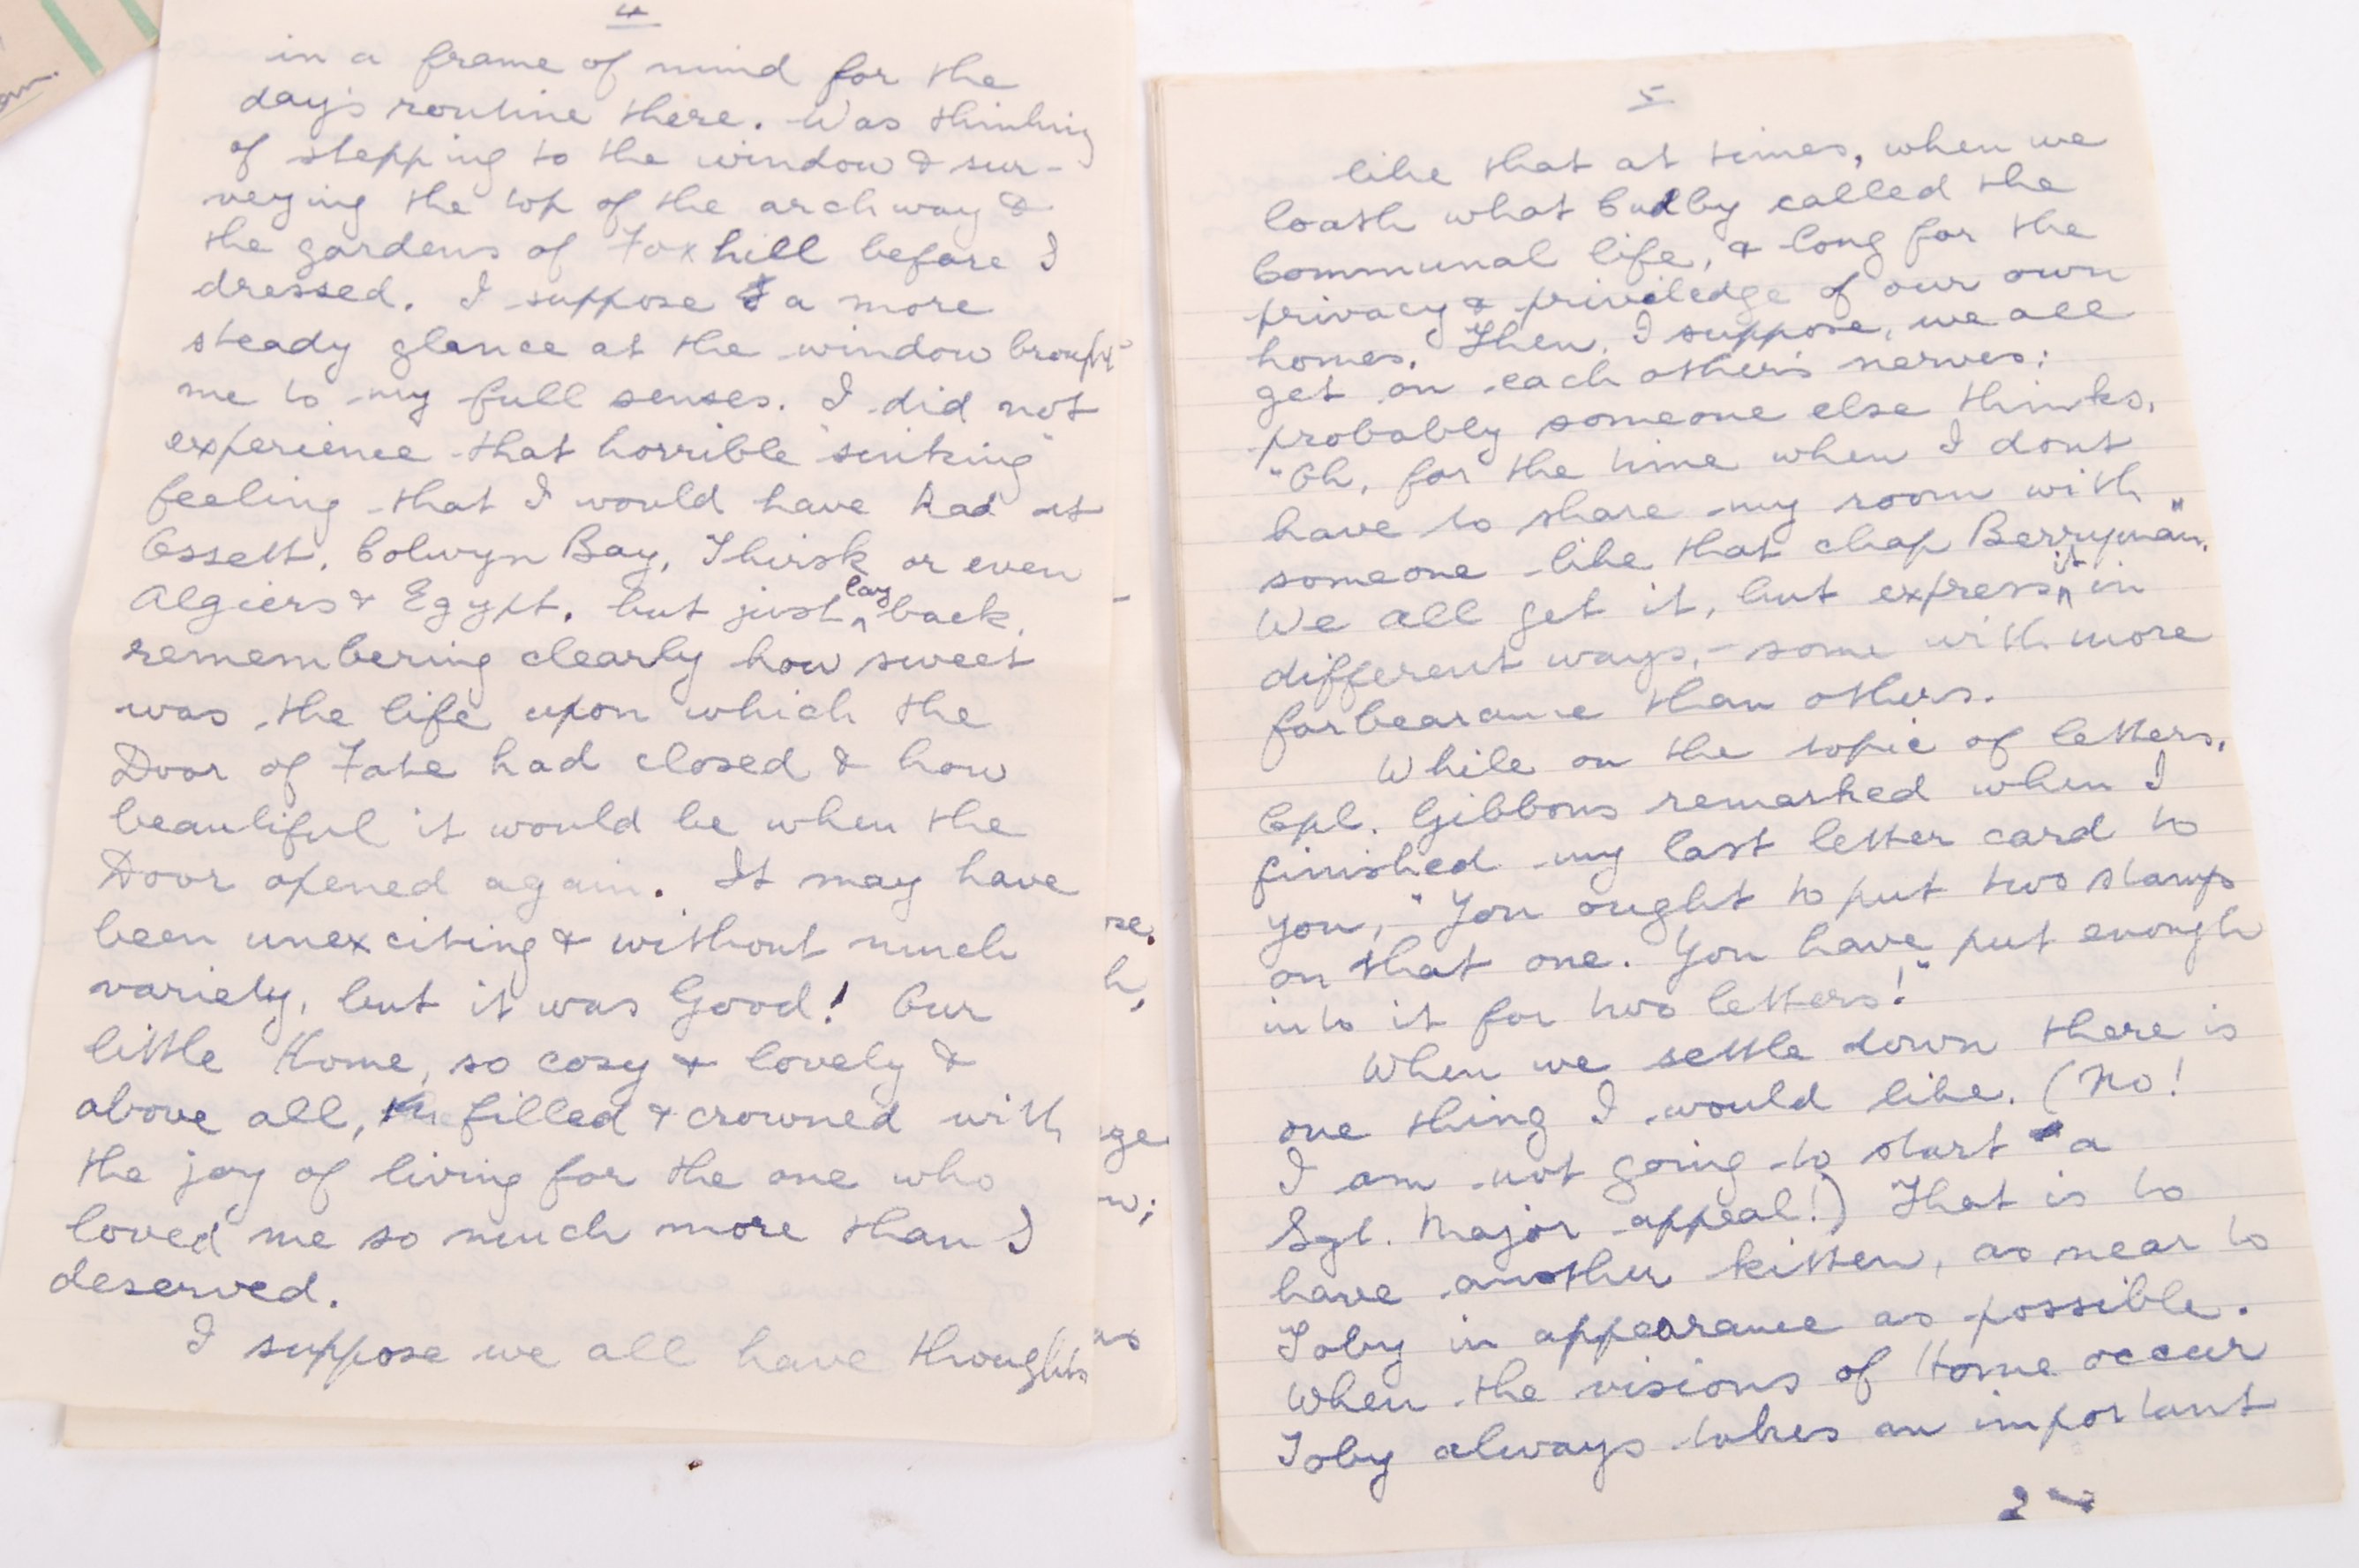 4
in a frame of mind for the
day's routine there. Was thinking
of stepping to the window & sur-
veying the top of the archway &
the gardens of Foxhill before I
dressed. I suppose a more
steady glance at the window brought
me to my full senses. I did not
experience that horrible "sinking"
feeling that I would have had at
Ossett, Colwyn Bay, Thirsk or even
Algiers & Egypt, but just lay back,
remembering clearly how sweet
was the life upon which the
Door of Fate had closed & how
beautiful it would be when the
Door opened again. It may have
been unexciting & without much
variety, but it was Good! Our
little Home, so cosy & lovely &
above all, filled & crowned with
the joy of living for the one who
loved me so much more than I
deserved.
I suppose we all have thoughts
re.
h,
ge
w;
as
5
like that at times, when we
loath what Cudby called the
Communal life, & long for the
privacy & priviledge of our own
homes. Then, I suppose, we all
get on each other's nerves;
probably someone else thinks,
"Oh, for the time when I dont
have to share my room with
someone like that chap Berryman".
We all get it, but express it in
different ways, - some with more
forbearance than others.
While on the topic of letters,
Cpl. Gibbons remarked when I
finished my last letter card to
you, "You ought to put two stamps
on that one. You have put enough
into it for two letters!"
When we settle down there is
one thing I would like. (No!
I am not going to start a
Sgt. Major appeal!) That is to
have another kitten, as near to
Toby in appearance as possible.
When the visions of Home occur
Toby always takes an important